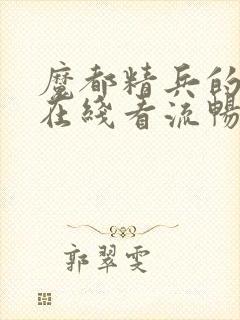 魔都精兵的
在线看流畅
郭翠雯